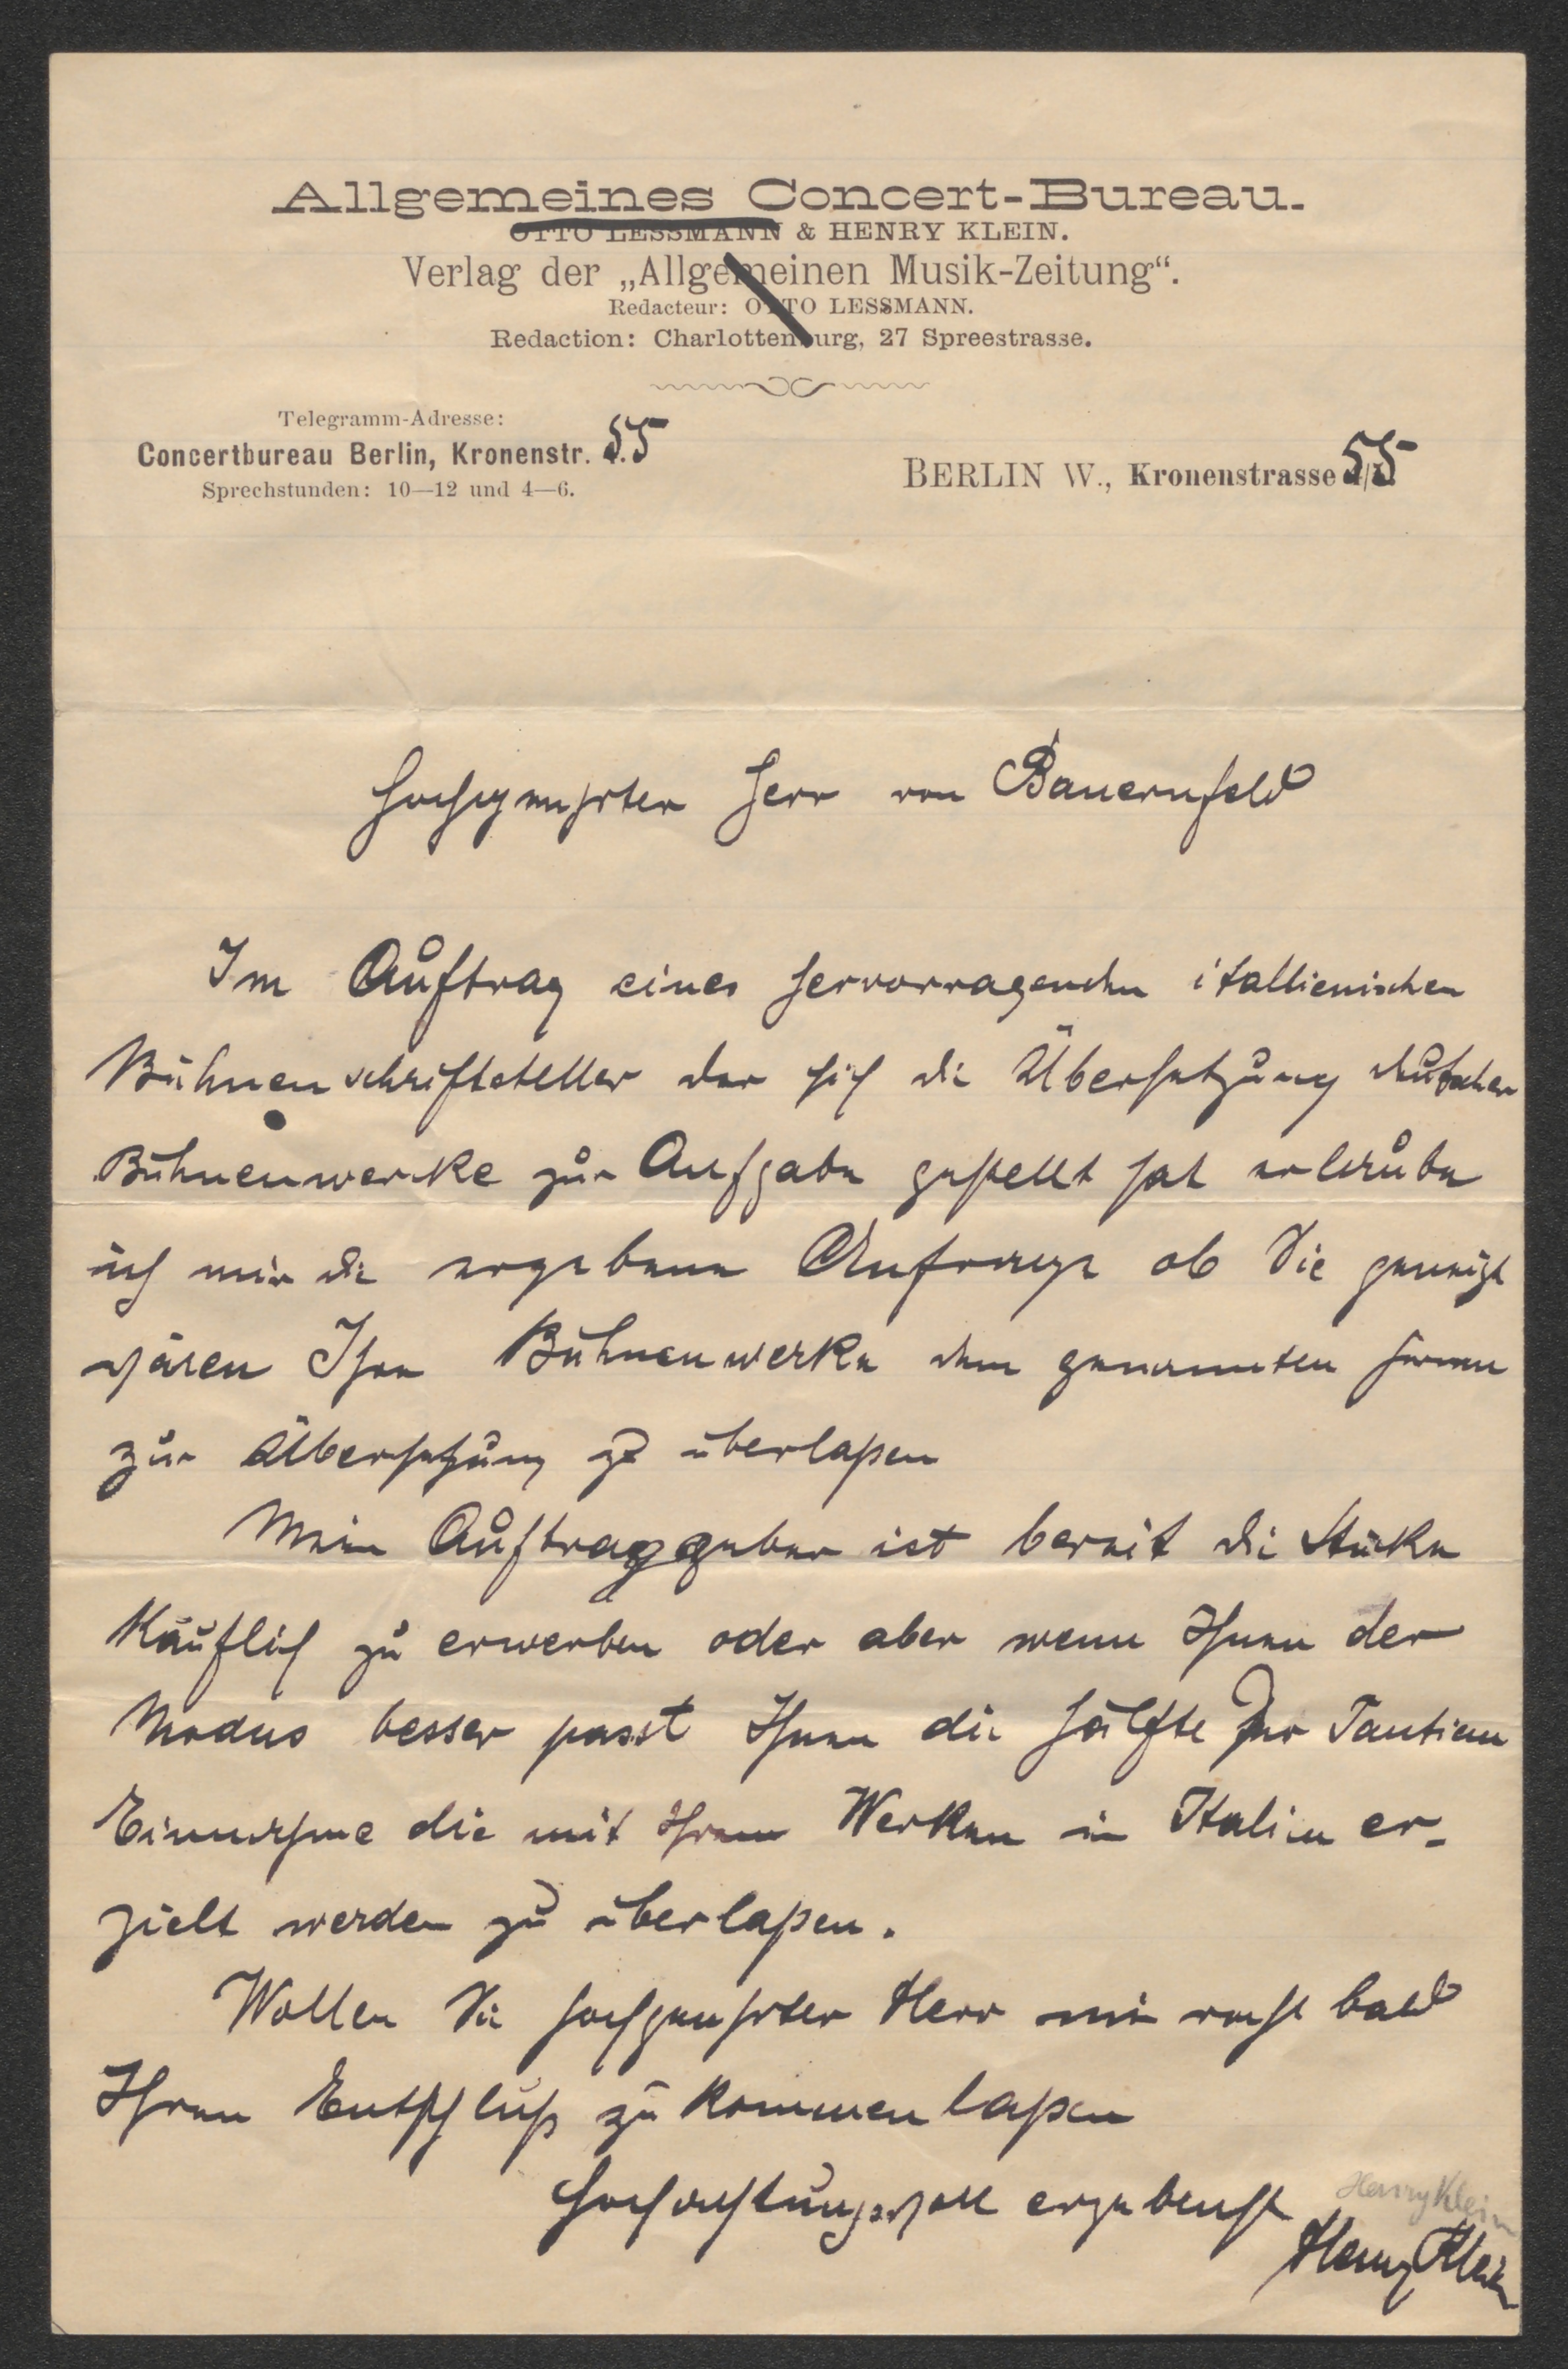 Allgemeines Concert-Bureau.
OTTO LESSMANN & HENRY KLEIN.
Verlag der „Allgemeinen Musik-Zeitung“.
Redacteur: OTTO LESSMANN.
Redaction: Charlottenburg, 27 Spreestrasse.
Telegramm-Adresse:
Concertbureau Berlin, Kronenstr. 55
Sprechstunden: 10—12 und 4—6.
BERLIN W., Kronenstrasse 55
Hochgeehrter Herr von Bauernfeld
Im Auftrag eines hervorragenden itallienischen
Bühnenschriftsteller der sich die Übersetzung deutscher
Bühnenwerke zur Aufgabe gestellt hat erlaube
ich mir die ergebene Anfrage ob Sie geneigt
wären Ihre Bühnenwerke dem genannten Herren
zur Übersetzung zu überlaßen
Mein Auftraggeber ist bereit die Stücke
Käuflich zu erwerben oder aber wenn Ihnen der
Modus besser passt Ihnen die Hälfte der Tantiem
Einnahme die mit Ihren Werken in Italien er-
zielt werden zu überlaßen.
Wollen Sie hochgeehrter Herr mir recht bald
Ihren Entschluß zu kommen laßen
Hochachtungsvoll ergebenst
Henry Klein
Henry Klein